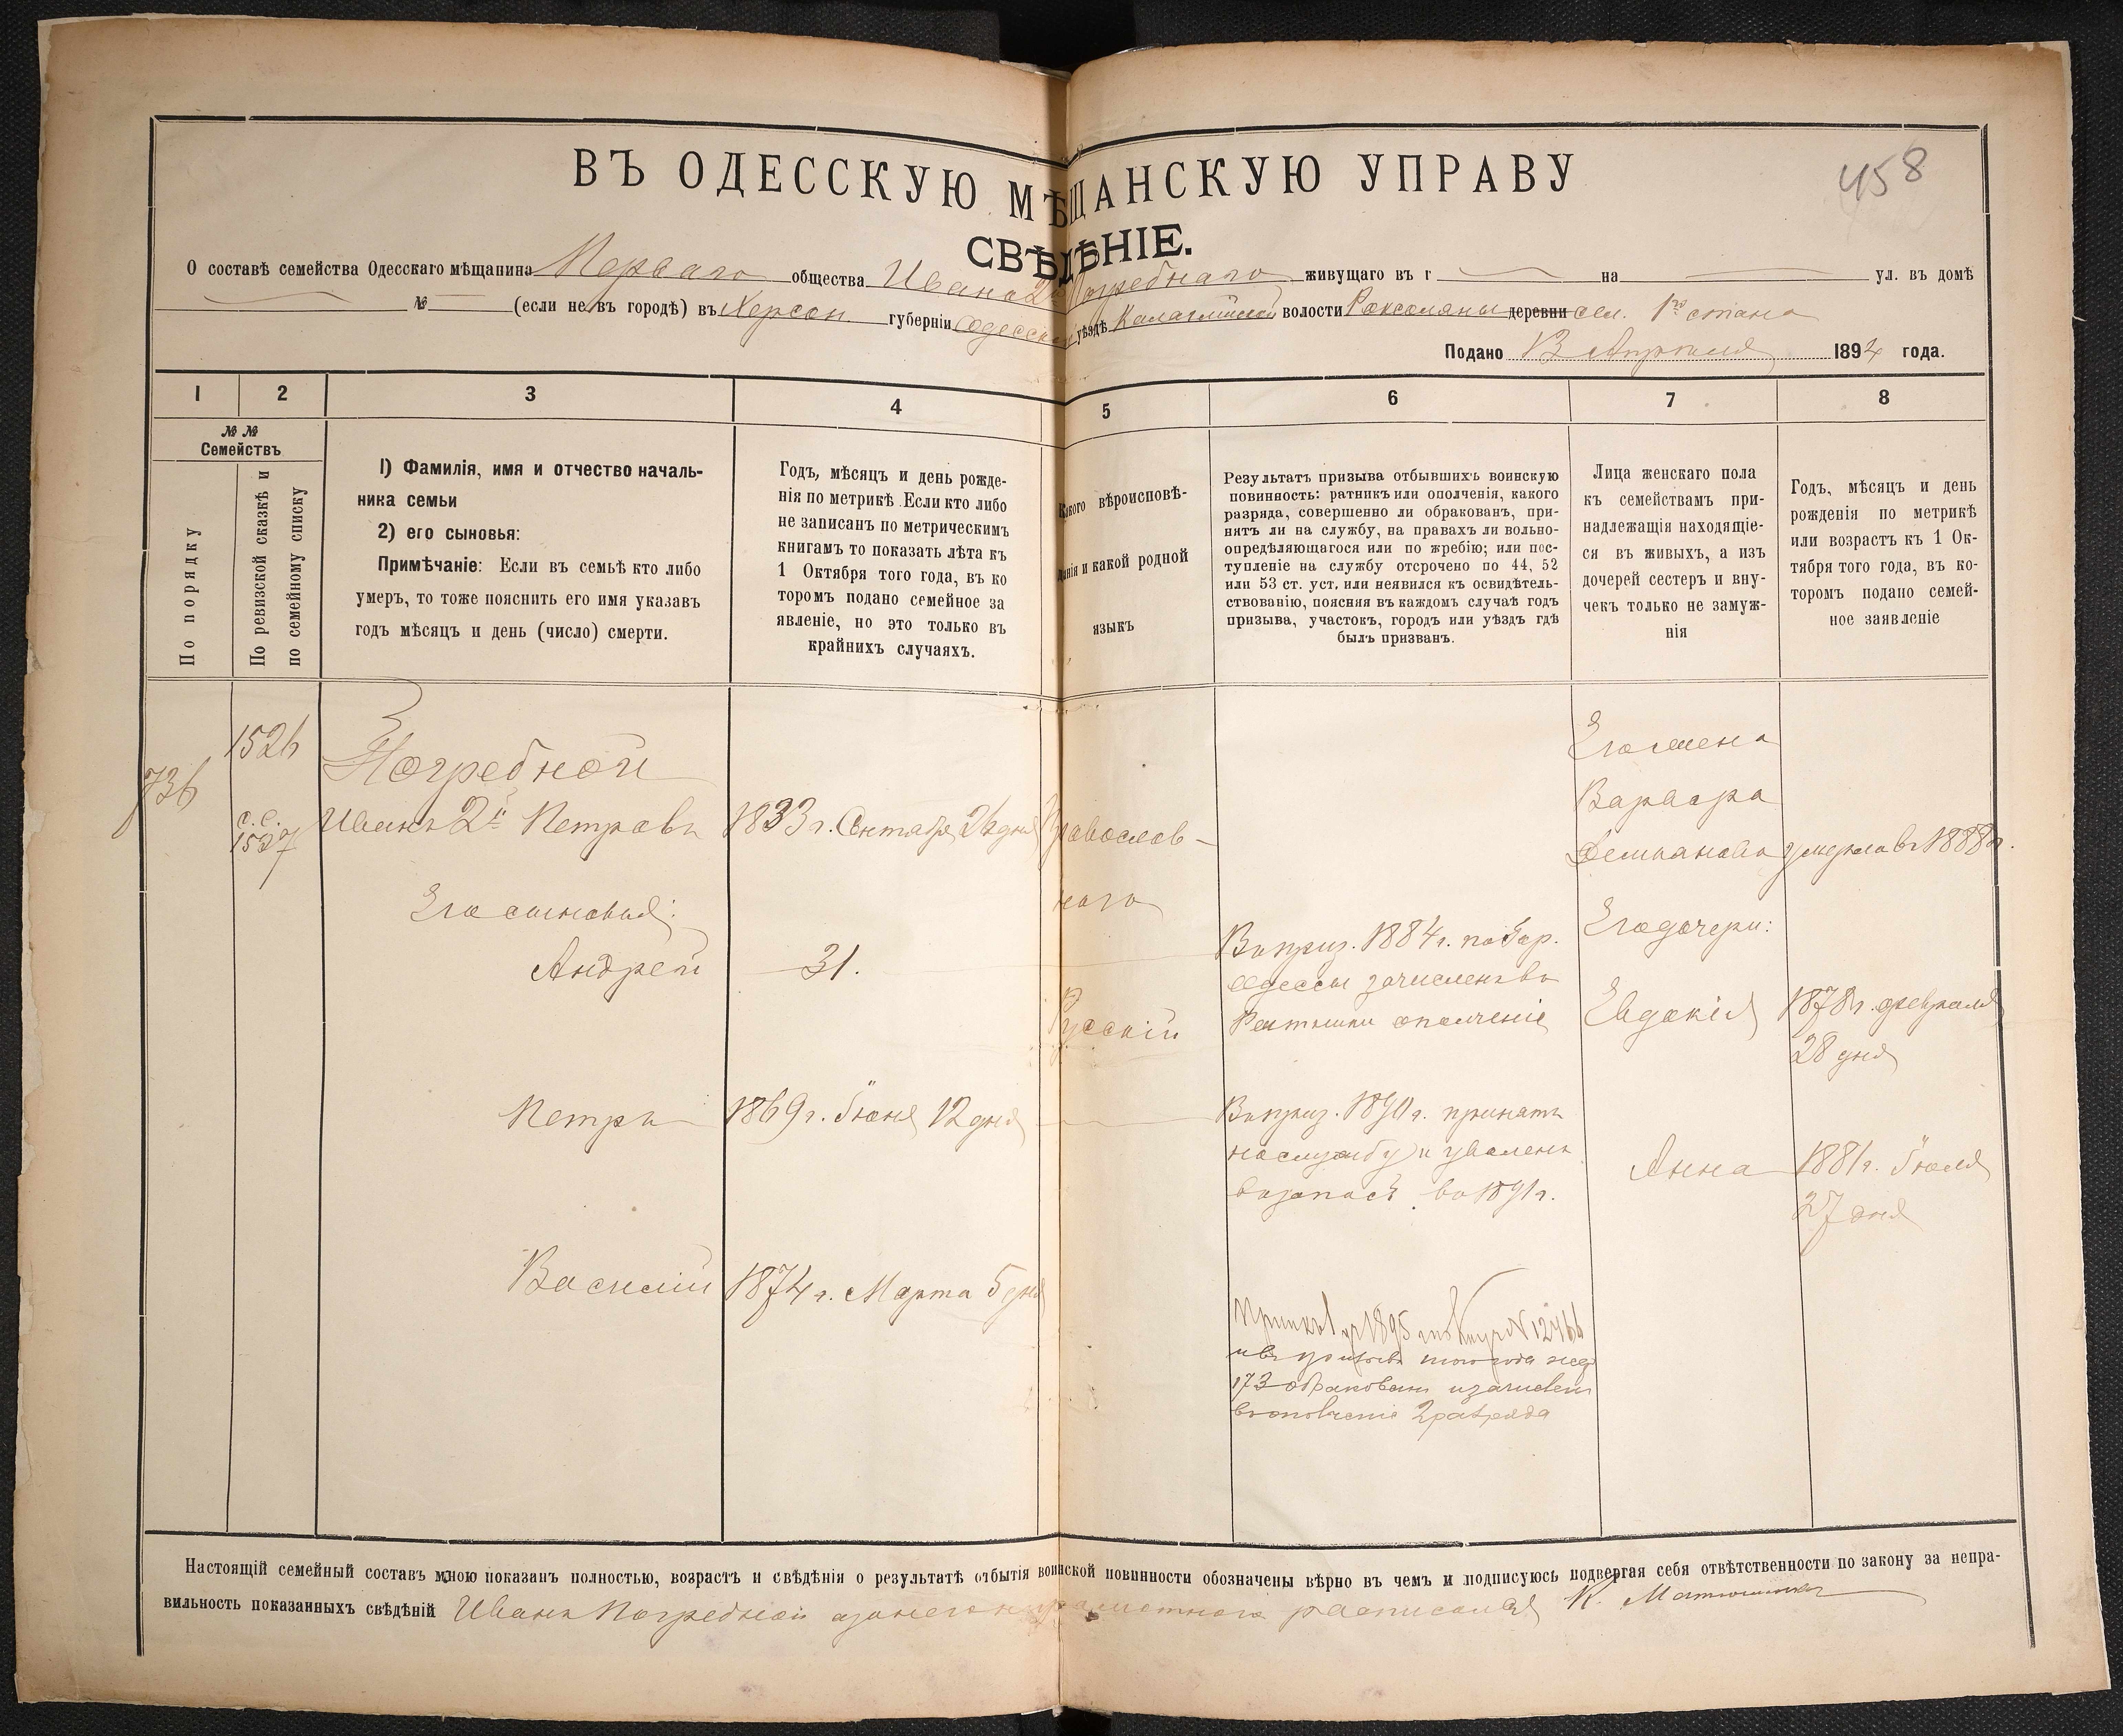 458
ВЪ ОДЕССКУЮ МѢЩАНСКУЮ УПРАВУ
СВѢДѢНІЕ.
О составѣ семейства Одесскаго мѣщанина Перваго общества Ивана 2го Погребнаго живущаго въ г на ул. въ домѣ
№ (если не въ городѣ) въ Херсон. губерніи Одесскомъ уѣздѣ Калаглійской волости Роксоляны деревни сел. 1го стана
Подано Апреля 1894 года.
1 2 3 4 5 6 7 8
№ №
Семействъ
По порядку
По ревизской сказкѣ и
по семейному списку
1) Фамилія, имя и отчество началь-
ника семьи
2) его сыновья:
Примѣчаніе: Если въ семьѣ кто либо
умеръ, то тоже пояснить его имя указавъ
годъ мѣсяцъ и день (число) смерти.
Годъ, мѣсяцъ и день рожде-
нія по метрикѣ. Если кто либо
не записанъ по метрическимъ
книгамъ то показать лѣта къ
1 Октября того года, въ ко
торомъ подано семейное за
явленіе, но это только въ
крайнихъ случаяхъ.
Какого вѣроисповѣ-
данія и какой родной
языкъ
Результатъ призыва отбывшихъ воинскую
повинность: ратникъ или ополченія, какого
разряда, совершенно ли обракованъ, при-
нятъ ли на службу, на правахъ ли вольно-
опредѣляющагося или по жребію; или пос-
тупленіе на службу отсрочено по 44, 52
или 53 ст. уст. или неявился къ освидѣтель-
ствованію, поясняя въ каждомъ случаѣ годъ
призыва, участокъ, городъ или уѣздъ гдѣ
былъ призванъ.
Лица женскаго пола
къ семействамъ при-
надлежащія находящіе-
ся въ живыхъ, а изъ
дочерей сестеръ и вну-
чекъ только не замуж-
нія
Годъ, мѣсяцъ и день
рожденія по метрикѣ
или возрастъ къ 1 Ок-
тября того года, въ ко-
торомъ подано семей-
ное заявленіе
736
1526
с. с.
1527
Погребной
Иванъ 2й Петровъ
1833 г. Сентября 26 дня
Православ-
наго
Русскій
Его жена
Варвара
Демьянова
умерла въ 1888 г.
Его сыновья:
Андрей
31.
Въ приз. 1884 г. по гор.
Одессы зачисленъ въ
Ратники ополченіе
Его дочери:
Евдокія
1878 г. февраля
28 дня
Петръ
1869 г. Іюня 12 дня
Въ приз. 1890 г. принятъ
на службу и уволенъ
въ запасъ въ 1891 г.
Анна
1881 г. Іюля
27 дня
Василій
1874 г. Марта 5 дня
1895
№ 12466
и въ призывъ того года
173 обракованъ и зачисленъ
въ ополченіе 2 разряда
Настоящій семейный составъ мною показанъ полностью, возрастъ и свѣдѣнія о результатѣ отбытія воинской повинности обозначены вѣрно въ чемъ и подписуюсь подвергая себя отвѣтственности по закону за непра-
вильность показанныхъ свѣдѣній Иванъ Погребной а за него неграмотнаго росписался К.